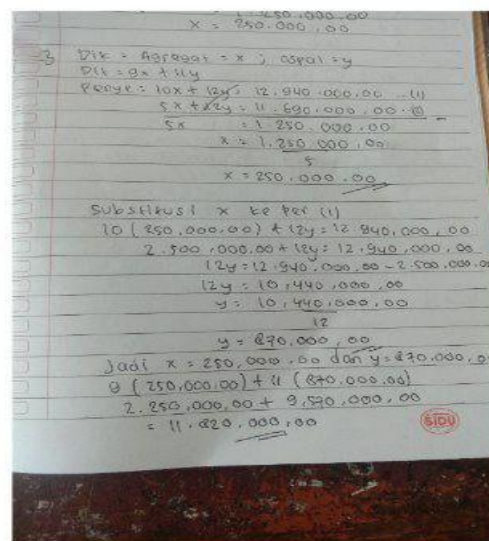 1.250.000.00
x = 250.000,00
3 Dik = Agregat = x ; aspal = y
Dit = 9x + 11y
Penye = 10x + 12y = 12.940.000.00 (1)
5x + 12y = 11.690.000,00
5x = 1.250.000.00
x = 1.250.000,00
5
x = 250.000.00
Substitusi x ke Per (1)
10 (250,000.00) + 12y = 12.940.000,00
2.500.000.00 + 12y = 12.940.000,00
12y = 12.940.000,00 - 2.500.000.00
12y = 10,440.000,00
y = 10,440.000,00
12
y = 870.000,00
Jadi x = 250,000.00 dan y = 870.000,00
9 (250,000.00) + 11 (870.000,00)
2.250,000,00 + 9,570,000,00
= 11.820.000,00
SIDU